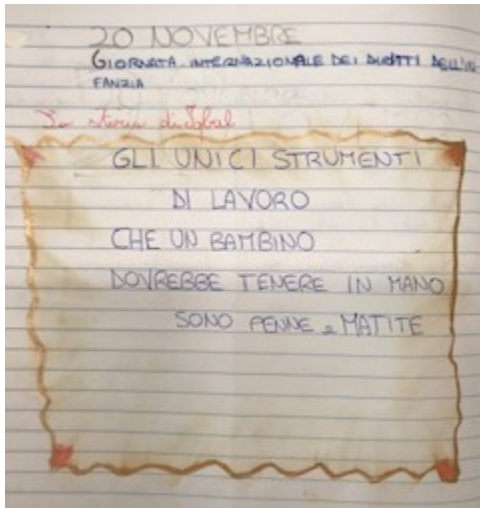 20 NOVEMBRE
GIORNATA INTERNAZIONALE DEI DIRITTI DELL'IN
FANZIA
La storia di Iqbal
GLI UNICI STRUMENTI
DI LAVORO
CHE UN BAMBINO
DOVREBBE TENERE IN MANO
SONO PENNE e MATITE